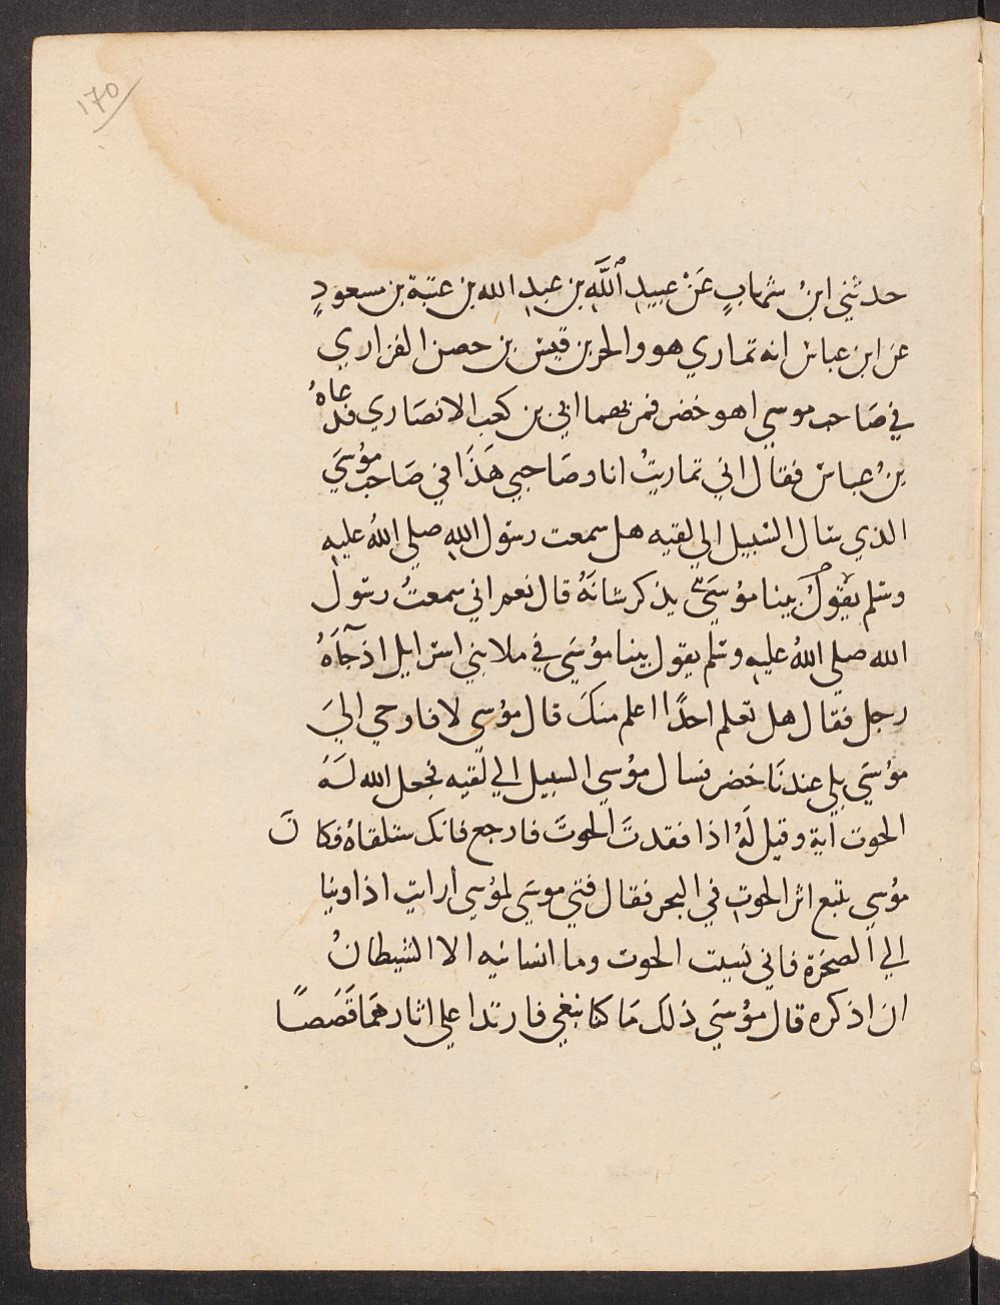 170
حدثني ابنُ شهابٍ عَنْ عبيدِ ٱللَّهِ بن عبدِ الله بن عتبة بن مسعودٍ
عن ابن عباس انه تماري هو والحر بن قيس بن حصن الفزاري
في صَاحب موسي اهو خضر فمر بهما ابي بن كعب الانصَاري فدعاهُ
بنُ عباس فقال اني تماريتُ انا وصَاحبي هَذَا في صَاحب مؤسَي
الذي سَال السَبيل الي لقيه هل سمعت رسَول اللهِ صلي اللهُ عليهِ
وسَلم يقول بينا مؤسَي يذكر شانَهُ قال نعم اني سمعتُ رسَول
الله صلي اللهُ عليهِ وسَلم يقول بينا مؤسَي في ملا بني اسَرايل اذ جآءَهُ
رجل فقال هل تعلم احدًا اعلم منكَ قال مؤسي لا فاوحي اليَ
مؤسَي بلي عندنَا خضر فسال مؤسي السبيل الي لقيه فجعل الله لهُ
الحوت اية وقيل لَهُ اذا فقدتَ الحوتَ فارجع فانك ستلقاهُ فكانَ
مؤسي يتبع اثر الحوتِ في البحر فقال فتي موسَي لمؤسي أرايت اذ اوينا
الي الصخرَة فاني نسَيت الحوت وما انسانيه الا الشيطانُ
ان اذكره قال مؤسَي ذلكَ مَا كنا نبغي فارتدا علي اثارهمَا قَصَصًا